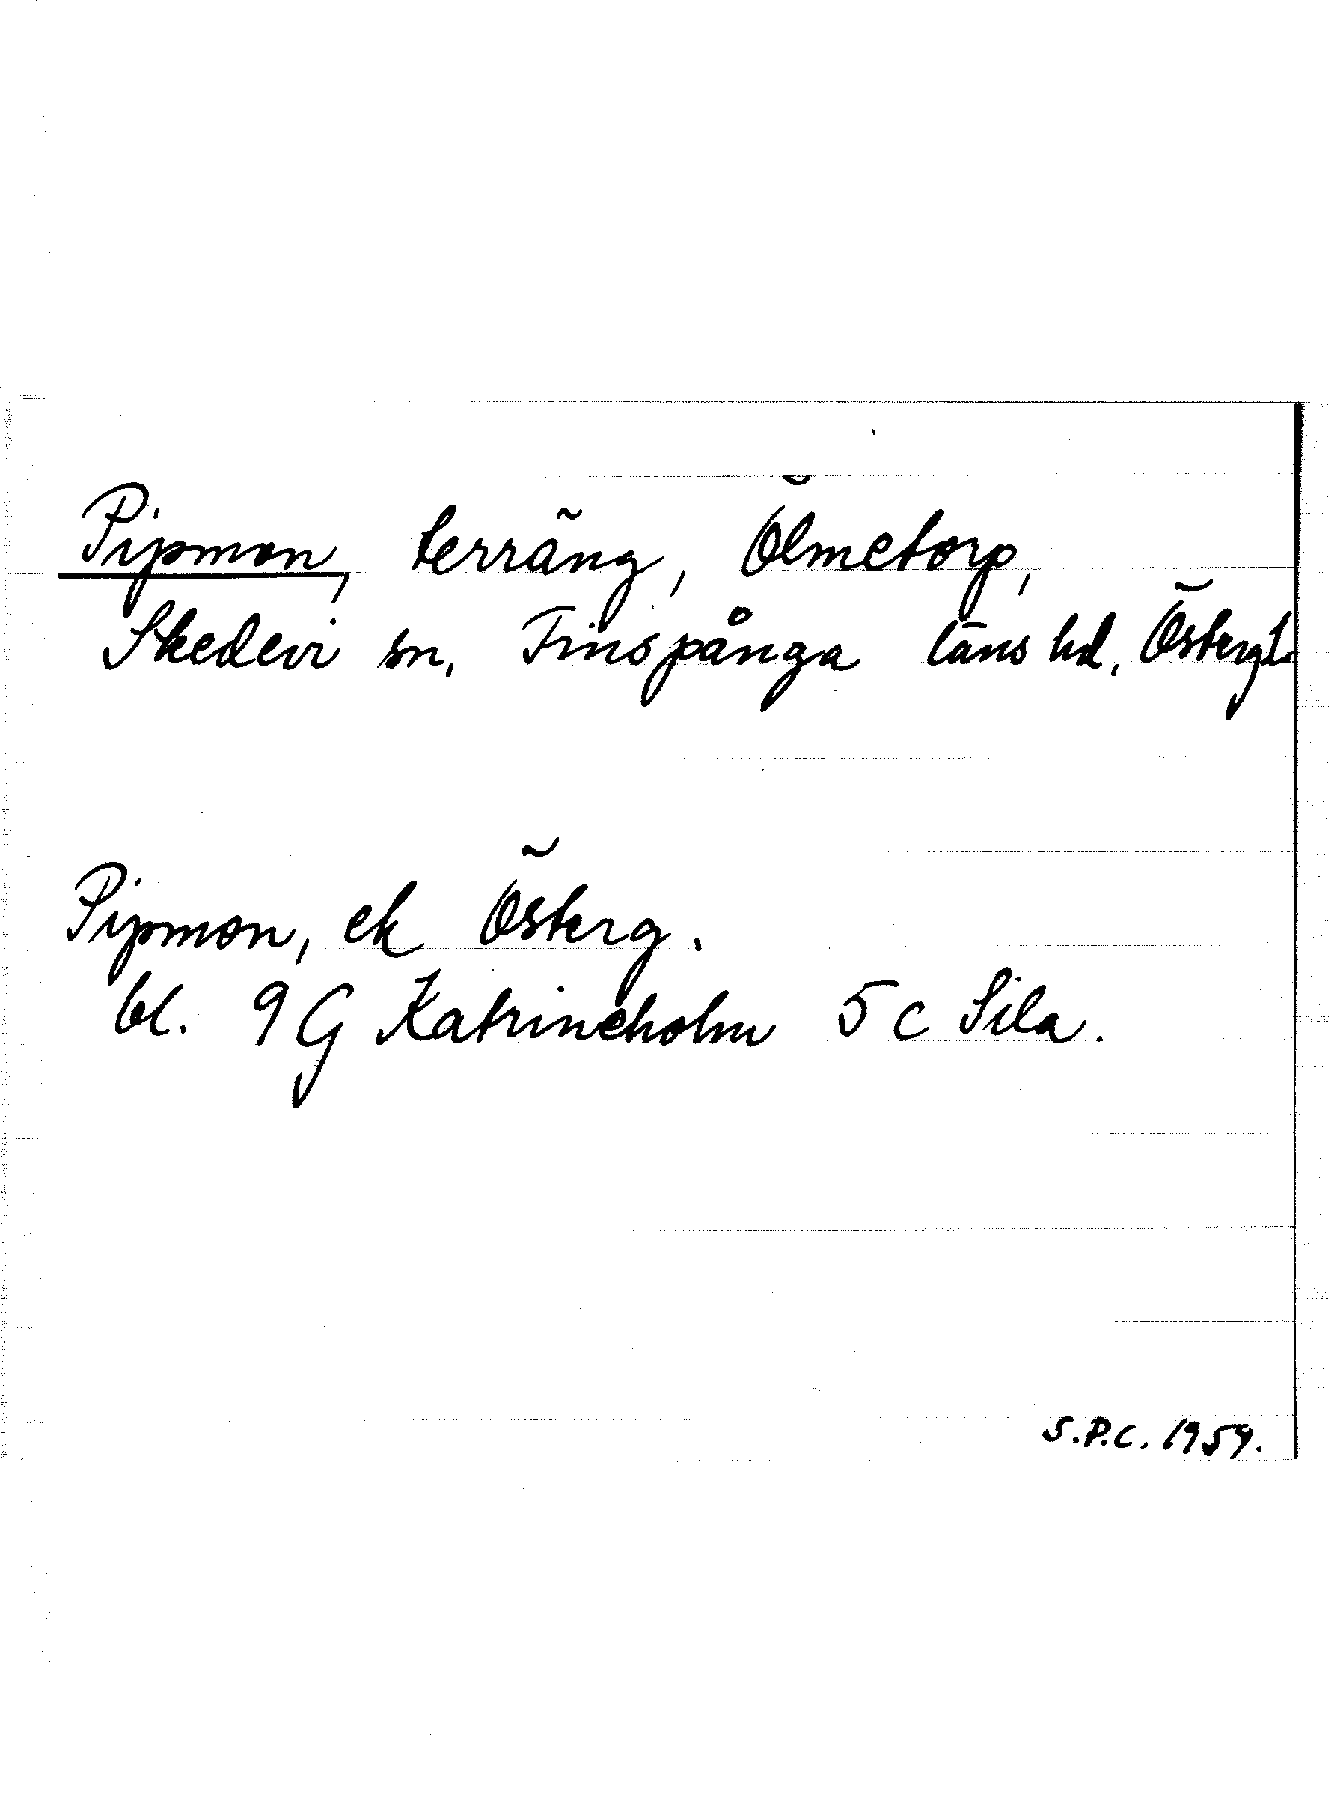 Pipmon, terräng, Ölmetorp,
Skedevi sn, Finspånga läns hd, Östergl.
Pipmon, ek Österg.
bl. 9G Katrineholm 5c Sila.
S.P.C. 1959.